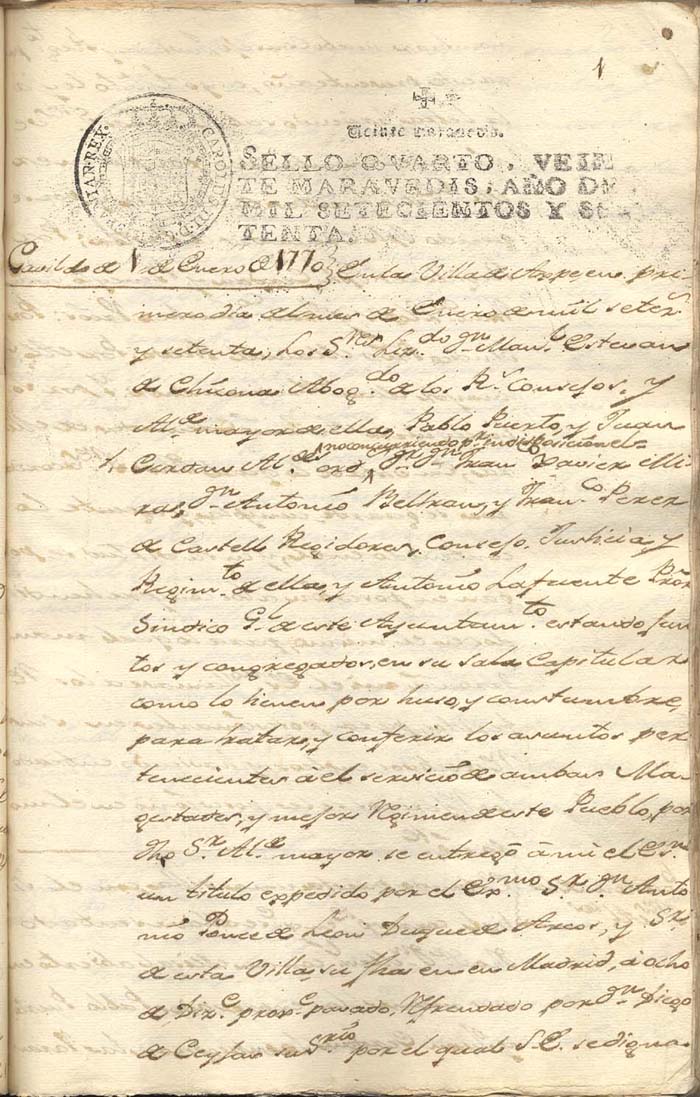 1
Veinte maravedis.
SELLO QVARTO, VEIN
TE MARAVEDIS, AÑO DE
MIL SETECIENTOS Y SE
TENTA.
CAROLUS III D G HISPANIAR REX
Cavildo de 1 de Enero de 1770 En la Villa de Aspe, en pri
mero dia del mes de Enero de mil setecs
y setenta, los Sres Lizdo Dn Manl Estevan
de Chicona Abogdo de los Rs Consejos, y
Alde mayor de ella, Pablo Puerto, y Juan
Cerdan Aldes ordos no concurriendo pr indisposicion el=
Dn Dn Franco Xavier Mi
ra, Dn Antonio Beltran, y Franco Perez
de Castell Regidores, Consejo, Justicia y
Regimto de ella, y Antonio Lafuente Pror
Sindico Gl de este Ayuntamto estando jun
tos y congregados, en su sala Capitular
como lo tienen por huso, y constumbre,
para tratar, y conferir los asuntos per
tenecientes à el servicio de ambas Ma
gestades, y mejor Regimen de este Pueblo, por
dho Sr Alde mayor se entregó à mi el Esno
un titulo expedido por el Exmo Sr Dn Anto
nio Ponce de Leon Duque de Arcos, y Sr
de esta Villa, su fha en en Madrid, à ocho
de Dize proxe pasado, Refrendado por Dn Diego
de Ceyjas su Srio por el qual S.E. se digna